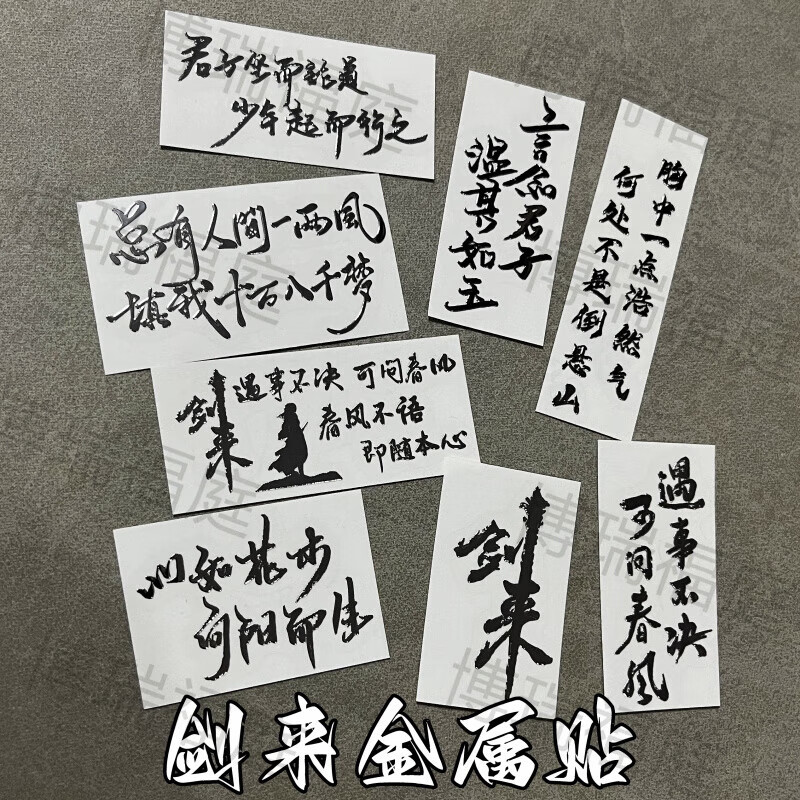 君子坐而论道
少年起而行之
言念君子
温其如玉
胸中一点浩然气
何处不是倒悬山
总有人间一两风
填我十万八千梦
剑来
遇事不决 可问春风
春风不语
即随本心
心如花木
向阳而生
剑来
遇事不决
可问春风
剑来金属贴
博瑞福庭